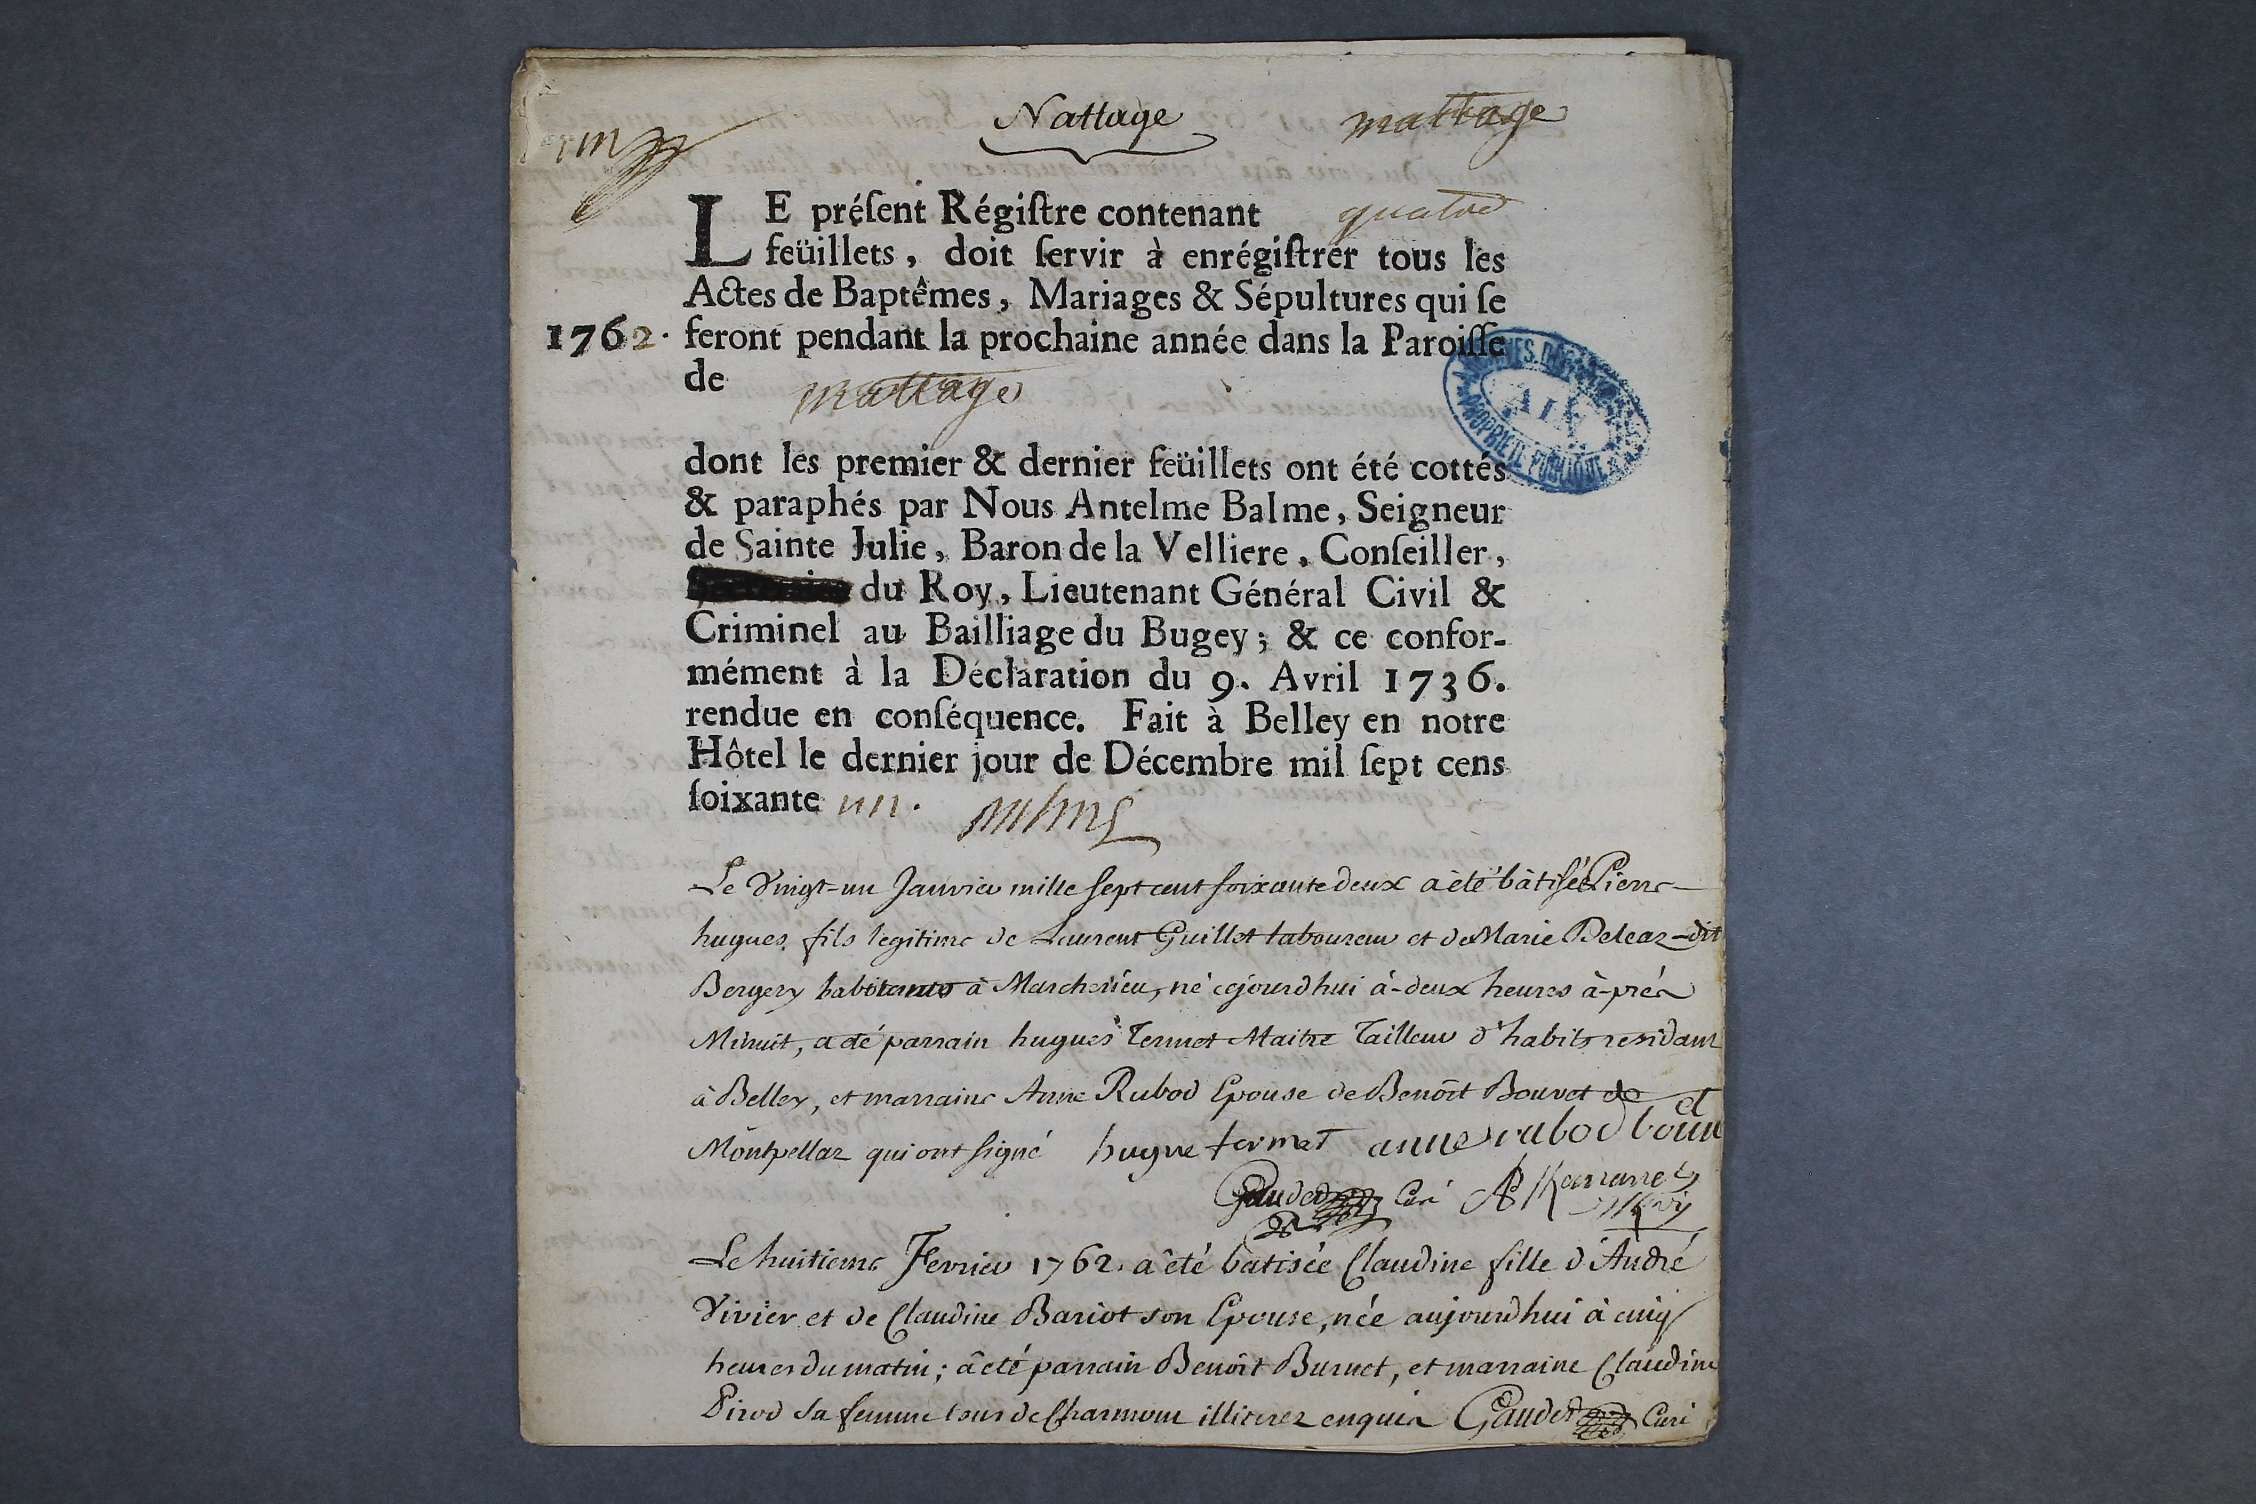 Nattage
mattage
LE préſent Régiſtre contenant quatre
feüillets, doit ſervir à enrégiſtrer tous les
Actes de Baptêmes, Mariages & Sépultures qui ſe
1762. feront pendant la prochaine année dans la Paroiſſe
de mattage
dont les premier & dernier feüillets ont été cottés
& paraphés par Nous Antelme Balme, Seigneur
de Sainte Julie, Baron de la Velliere, Conſeiller,
du Roy, Lieutenant Général Civil &
Criminel au Bailliage du Bugey; & ce confor-
mément à la Déclaration du 9. Avril 1736.
rendue en conſéquence. Fait à Belley en notre
Hôtel le dernier jour de Décembre mil ſept cens
ſoixante un.
PROPRIETE PUBLIQUE
AIN
Le Vingt-un Janvier mille sept cent soixante deux a été bâtisé Pierre
hugues fils legitime de Laurent Guillot laboureur et de Marie Beleaz dit
Bergery habitants à Marcherieu, né cejourdhui à-deux heures à-prés
Minuit, a été parrain hugues Termet Maitre Tailleur d'habits residant
à Belley, et marraine Anne Rubod Epouse de Benoît Bouvet de
Montpellaz qui ont signé hugue termet anne rubod
Gaudet Curé
Le huitieme Fevrier 1762. a êté batisée Claudine fille d'André
Vivier et de Claudine Bariot son Epouse, née aujourdhui à cinq
heures du matin; a été parrain Benoit Burnet, et marraine Claudine
Pirod sa femme tous de Charmont illiterez enquis Gaudet Curé